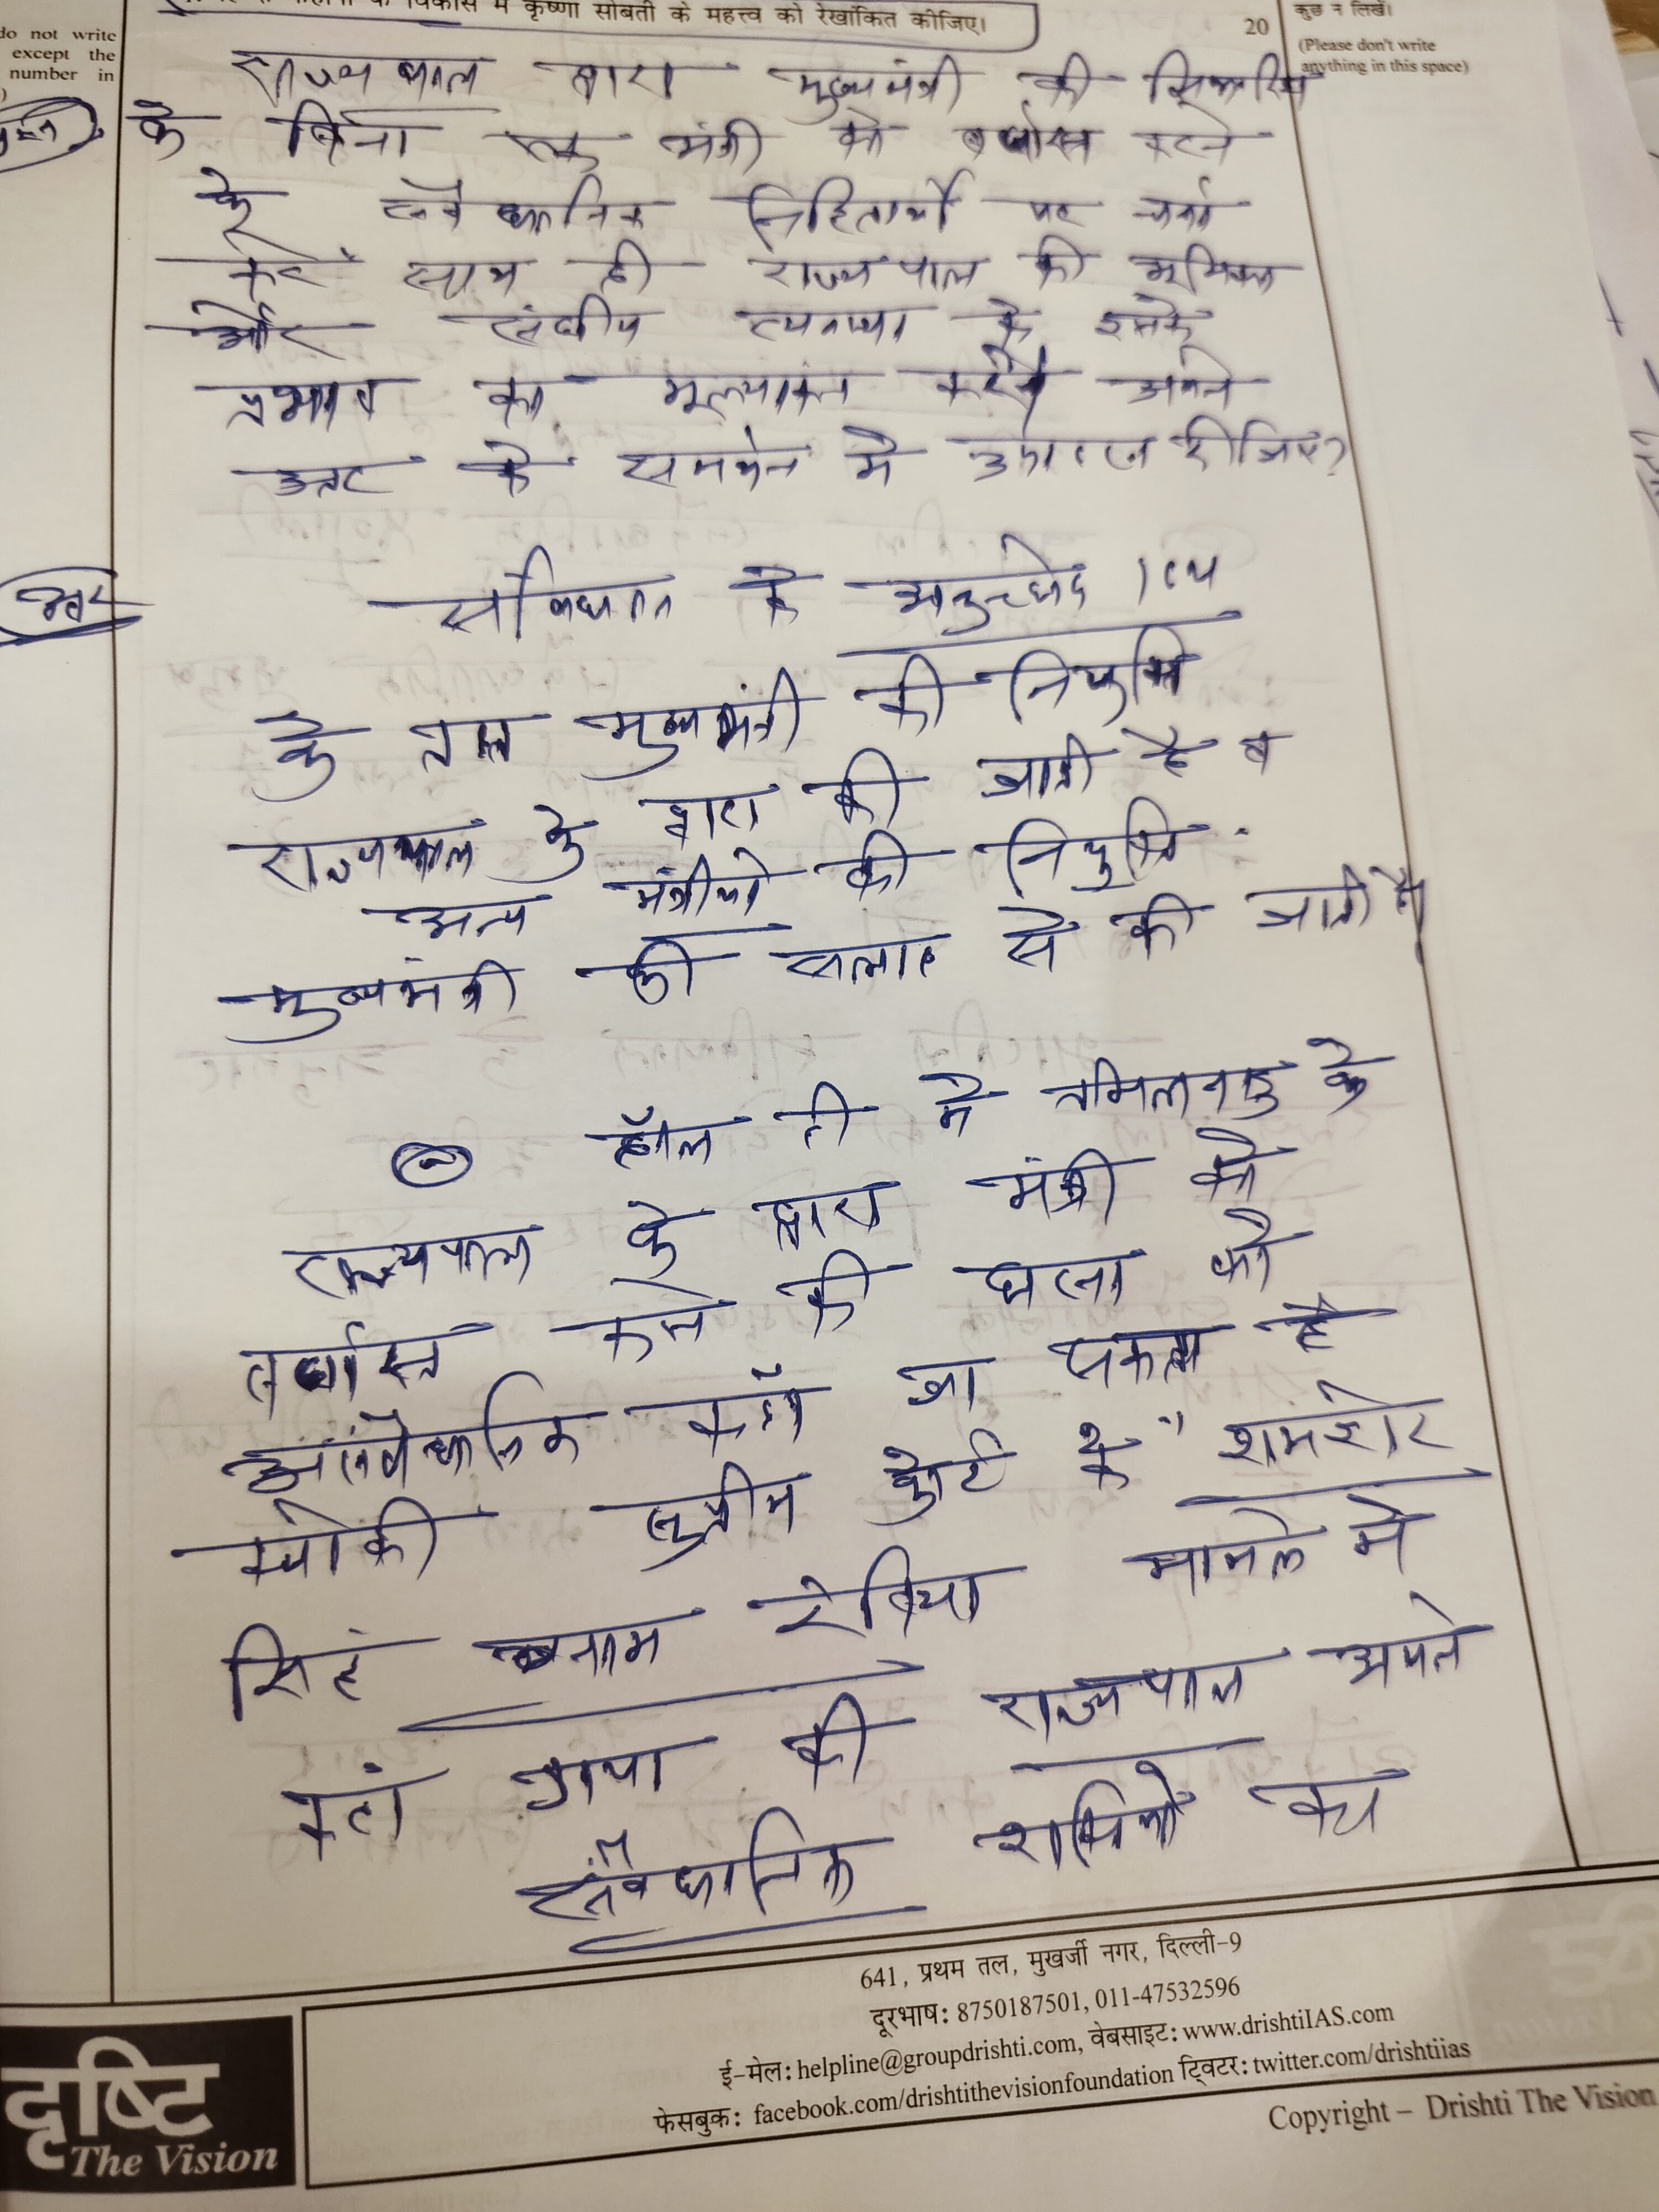 विकास में कृष्णा सोबती के महत्त्व को रेखांकित कीजिए।
20
कुछ न लिखें।
(Please don't write
anything in this space)
do not write
except the
number in
राज्यपाल द्वारा मुख्यमंत्री की सिफारिश
के बिना एक मंत्री को बर्खास्त करने
के संवैधानिक निहितार्थो पर चर्चा
करें साथ ही राज्यपाल की भूमिका
और संघीय व्यवस्था के इसके
प्रभाव का मूल्यांकन करते अपने
उत्तर के समर्थन मे उदाहरण दीजिए?
उत्तर
संविधान के अनुच्छेद 164
के तहत मुख्यमंत्री की नियुक्ति
राज्यपाल के द्वारा की जाती है व
अन्य मंत्रीयो की नियुक्ति
मुख्यमंत्री की सलाह से की जाती है|
हॉल ही मे तमिलनाडु के
राज्यपाल के द्वारा मंत्री को
बर्खास्त करने की घटना को
असंवैधानिक कहाँ जा सकता है
क्योकी सुप्रीम कोर्ट के "शमशेर
सिहं बनाम रेबिया मामले मे
कहां गया की राज्यपाल अपने
संवैधानिक शक्तियो का
641, प्रथम तल, मुखर्जी नगर, दिल्ली-9
दूरभाष: 8750187501, 011-47532596
ई-मेल: helpline@groupdrishti.com, वेबसाइट: www.drishtiIAS.com
फेसबुक: facebook.com/drishtithevisionfoundation ट्विटर: twitter.com/drishtiias
दृष्टि
The Vision
Copyright – Drishti The Vision